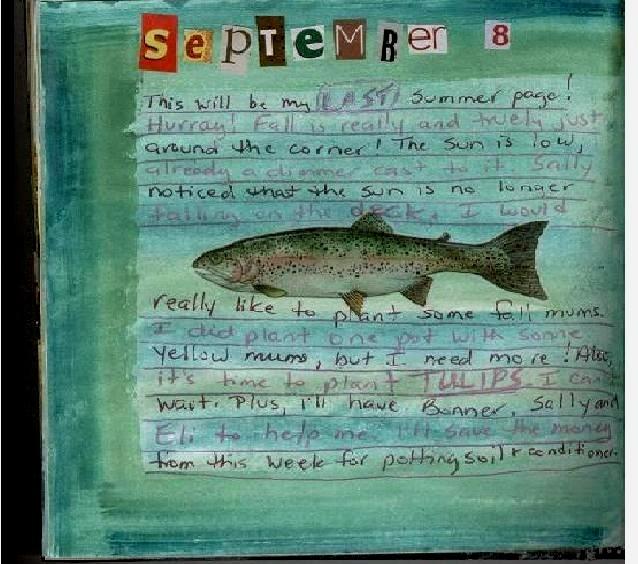 September 8
This will be my LAST Summer page!
Hurray! Fall is really and truely just
around the corner! The Sun is low,
already a dimmer cast to it. Sally
noticed that the sun is no longer
falling on the deck. I would
really like to plant some fall mums.
I did plant one pot with some
yellow mums, but I need more! Also,
it's time to plant TULIPS I can't
wait. Plus, I'll have Bonner, Sally and
Eli to help me. I'll save the money
from this week for potting soil + conditioner.